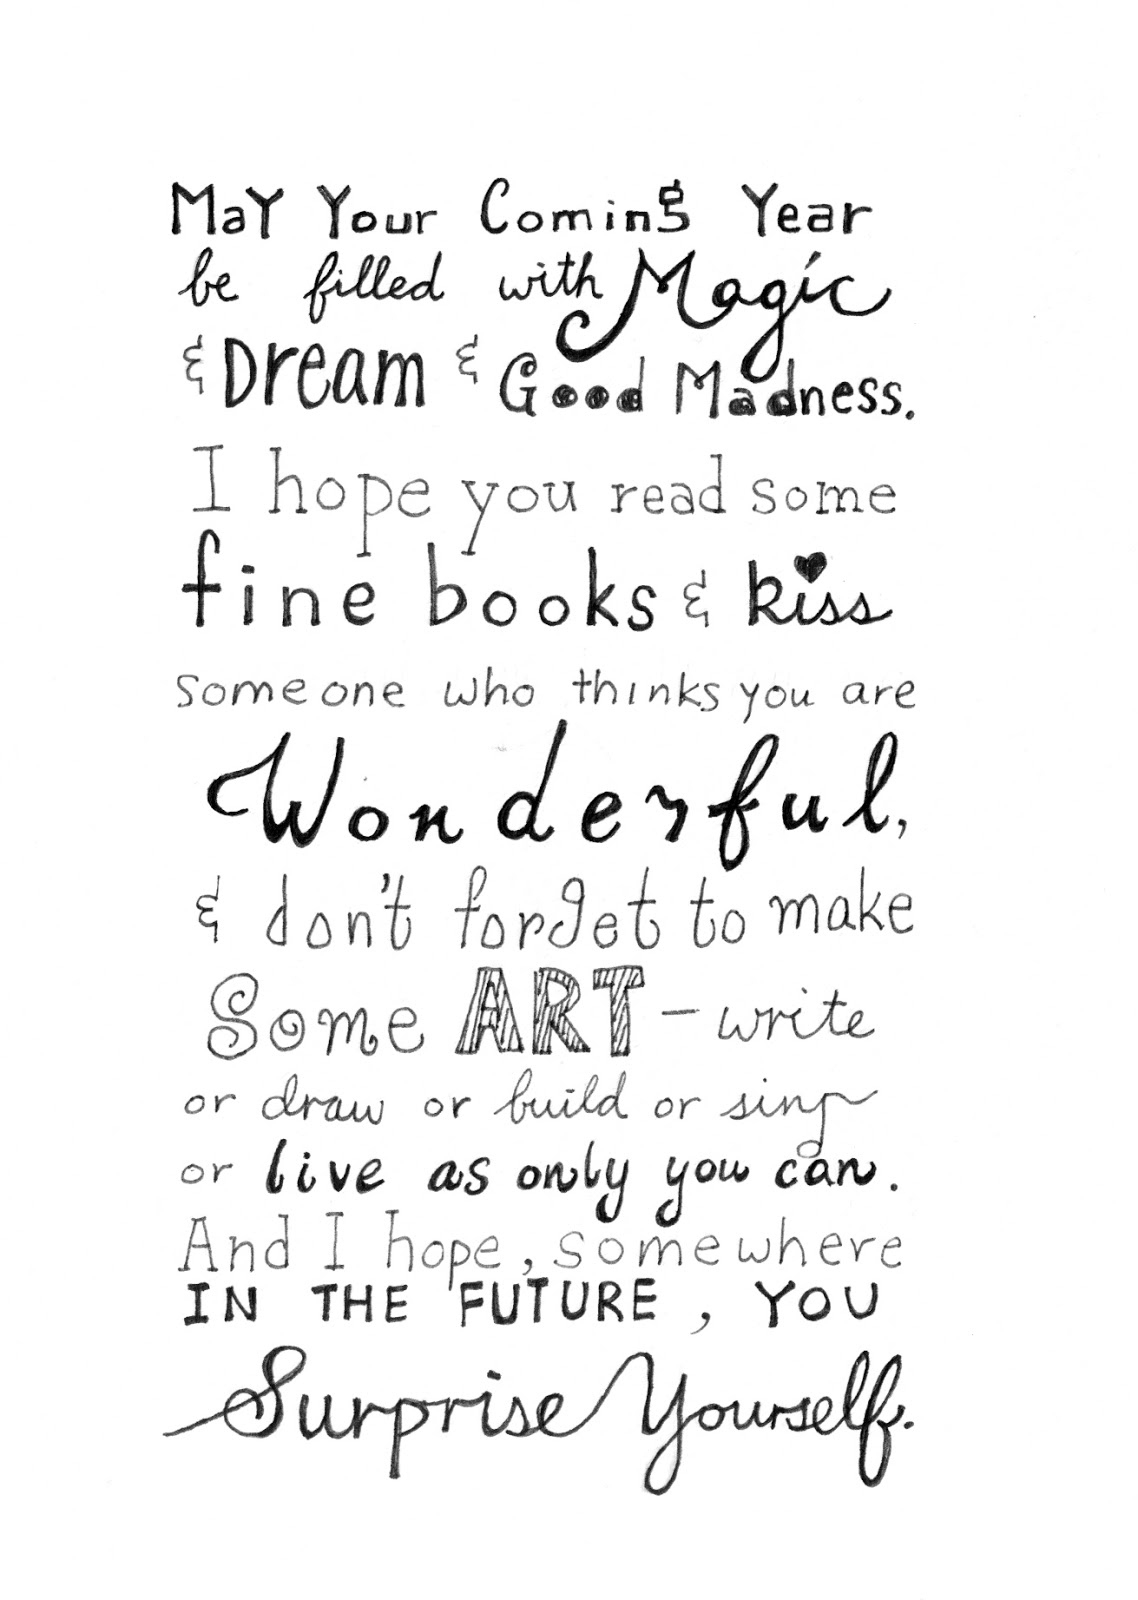 May Your Coming Year
be filled with Magic
& Dream & Good Madness.
I hope you read some
fine books & kiss
someone who thinks you are
Wonderful,
& don't forget to make
Some ART – write
or draw or build or sing
or live as only you can.
And I hope, somewhere
IN THE FUTURE, YOU
Surprise Yourself.